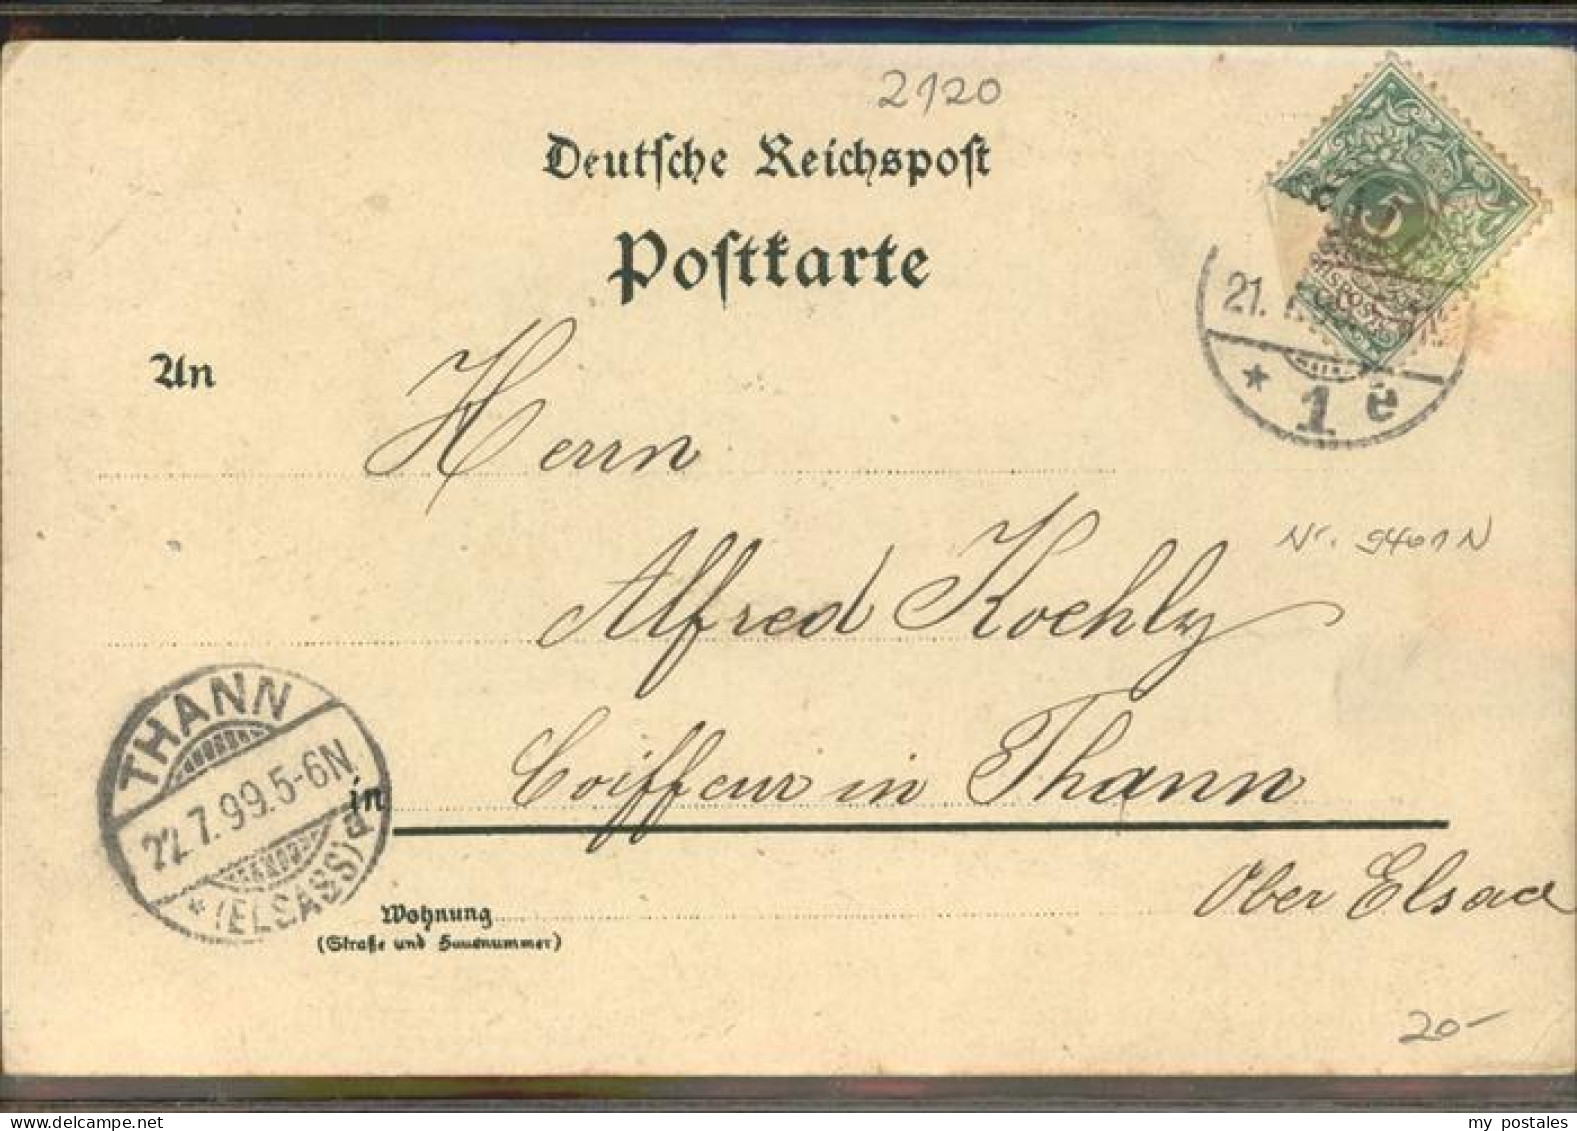 2120
Deutsche Reichspost
Postkarte
5
21.
* 1 e
An
Herrn
Nr. 9401N
Alfred Koehly
THANN
22.7.99.5-6N
* (ELSASS)
Coiffeur in Thann
in
Ober Elsace
Wohnung
(Straße und Hausnummer)
20-
my postales